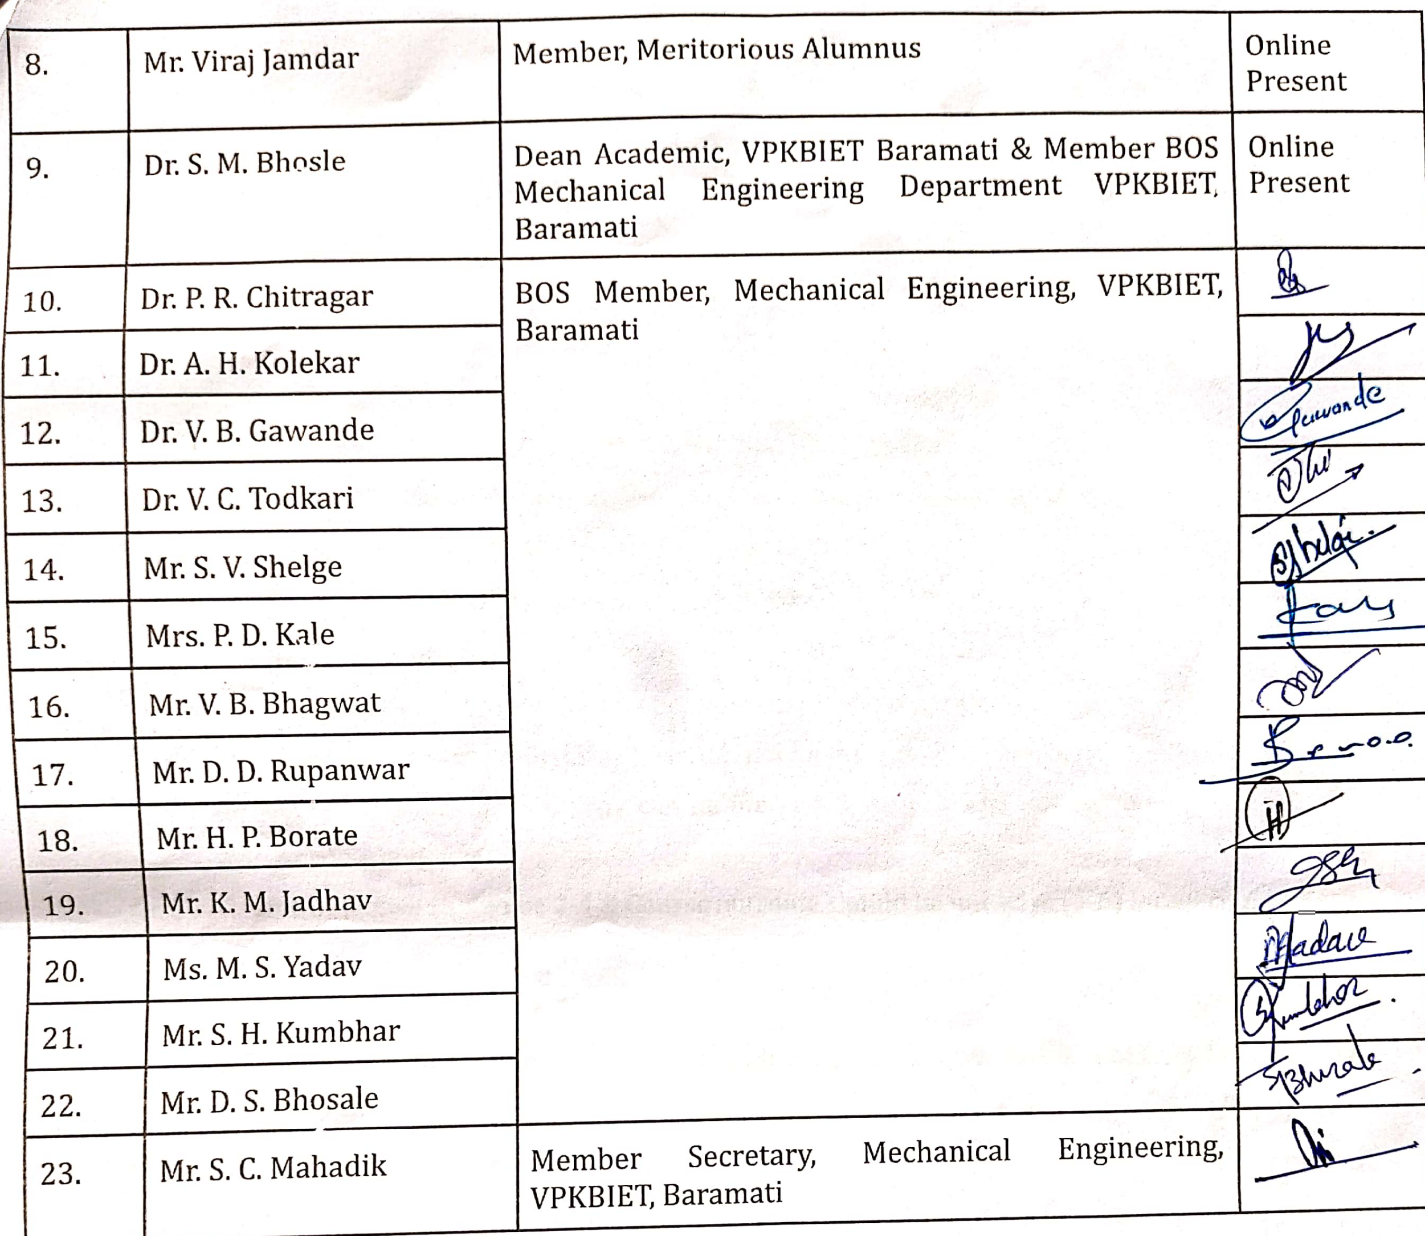 8. Mr. Viraj Jamdar Member, Meritorious Alumnus Online
Present
9. Dr. S. M. Bhosle Dean Academic, VPKBIET Baramati & Member BOS Online
Mechanical Engineering Department VPKBIET, Present
Baramati
10. Dr. P. R. Chitragar BOS Member, Mechanical Engineering, VPKBIET,
Baramati
11. Dr. A. H. Kolekar
12. Dr. V. B. Gawande Gawande
13. Dr. V. C. Todkari
14. Mr. S. V. Shelge
15. Mrs. P. D. Kale
16. Mr. V. B. Bhagwat
17. Mr. D. D. Rupanwar
18. Mr. H. P. Borate
19. Mr. K. M. Jadhav
20. Ms. M. S. Yadav
21. Mr. S. H. Kumbhar
22. Mr. D. S. Bhosale
23. Mr. S. C. Mahadik Member Secretary, Mechanical Engineering,
VPKBIET, Baramati